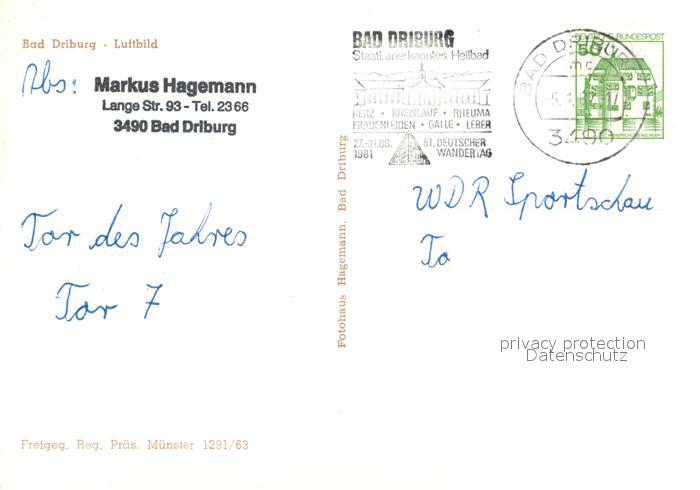 Bad Driburg - Luftbild
Abs:
Markus Hagemann
Lange Str. 93 - Tel. 2366
3490 Bad Driburg
Tor des Jahres
Tor 7
Freigeg. Reg. Präs. Münster 1291/63
Fotohaus Hagemann, Bad Driburg
BAD DRIBURG
Staatl. anerkanntes Heilbad
HERZ · KREISLAUF · RHEUMA
FRAUENLEIDEN · GALLE · LEBER
27.-31.08. 81. DEUTSCHER
1981 WANDERTAG
BAD DRIBURG
mc
3490
50
DEUTSCHE BUNDESPOST
WDR Sportschau
To
privacy protection
Datenschutz